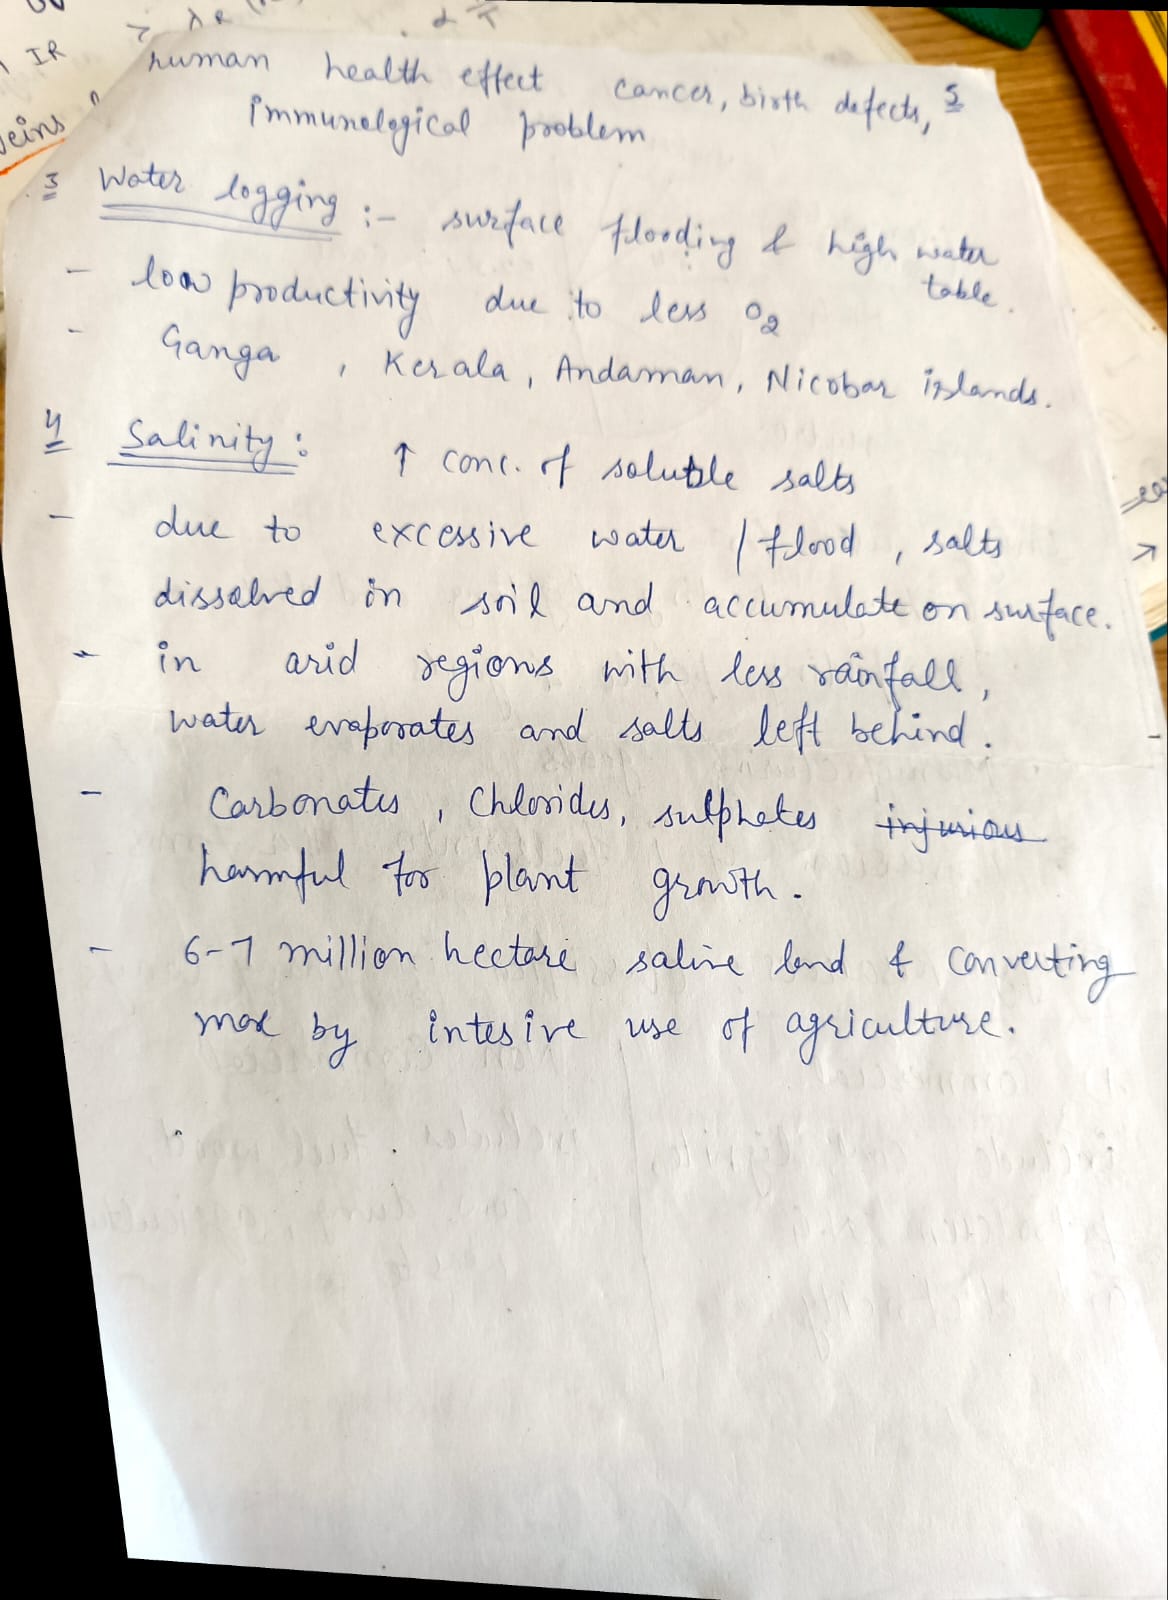 IR
human health effect cancer, birth defects, 5
immunological problem
3 Water logging :- surface flooding & high water
table.
- low productivity due to less O2
- Ganga , Kerala, Andaman, Nicobar islands.
4 Salinity: ↑ conc. of soluble salts
- due to excessive water / flood , salts
dissolved in soil and accumulate on surface.
- in arid regions with less rainfall,
water evaporates and salts left behind.
- Carbonates , Chlorides, sulphates injurious
harmful for plant growth.
- 6-7 million hectare saline land & converting
more by intesive use of agriculture.